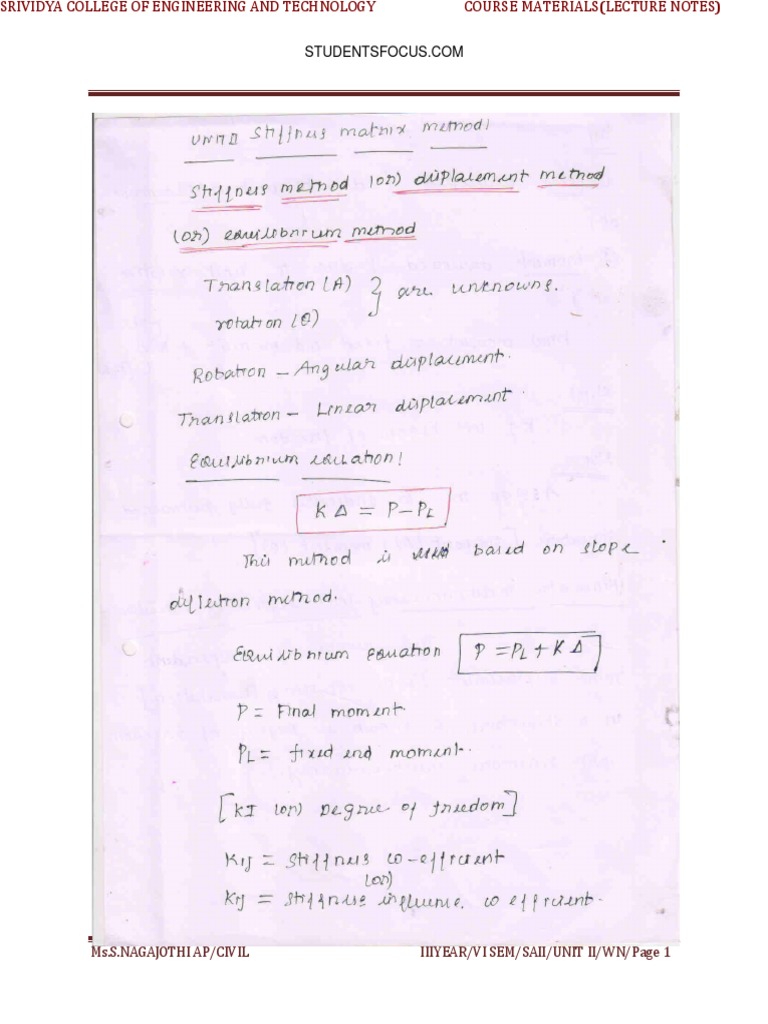 SRIVIDYA COLLEGE OF ENGINEERING AND TECHNOLOGY COURSE MATERIALS(LECTURE NOTES)
STUDENTSFOCUS.COM
UNIT II Stiffness matrix method!
Stiffness method (or) displacement method
(or) equilibrium method
Translation (Δ) } are unknowns.
rotation (θ)
Rotation - Angular displacement.
Translation - Linear displacement.
Equilibrium equation!
K Δ = P-PL
This method is based on slope
deflection method.
Equilibrium equation P = PL + K Δ
P = Final moment.
PL = fixed end moment.
[KI (or) Degree of freedom]
Kij = stiffness co-efficient
(or)
Kij = stiffness influence co efficient.
Ms.S.NAGAJOTHI AP/CIVIL IIIYEAR/VI SEM/SAII/UNIT II/WN/Page 1